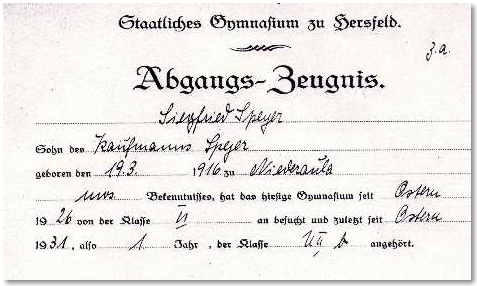 Staatliches Gymnasium zu Hersfeld.
z. a.
Abgangs-Zeugnis.
Siegfried Speyer
Sohn des Kaufmanns Speyer
geboren den 19.3. 1916 zu Niederaula
Bekenntnisses, hat das hiesige Gymnasium seit Ostern
1926 von der Klasse VI an besucht und zuletzt seit Ostern
1931, also 1 Jahr, der Klasse UII b angehört.